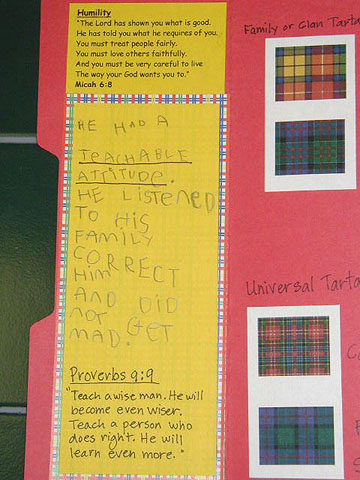 Humility
"The Lord has shown you what is good.
He has told you what he requires of you.
You must treat people fairly.
You must love others faithfully.
And you must be very careful to live
The way your God wants you to."
Micah 6:8
HE HAD A
TEACHABLE
ATTITUDE.
HE LISTENED
TO HIS
FAMILY
CORRECT
Him
AND DID
not GET
MAD.
Proverbs 9:9
"Teach a wise man. He will
become even wiser.
Teach a person who
does right. He will
learn even more."
Family or Clan Tarta
Universal Tarta